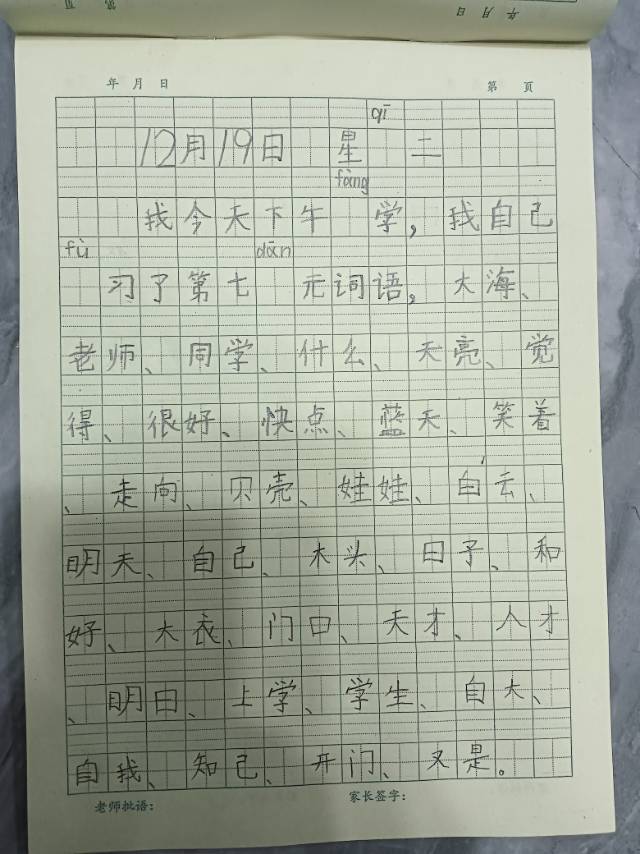 年 月 日
第 页
qī
12月19日 星 二
fàng
我今天下午 学，我自己
fù dān
习了第七 元词语，大海、
老师、同学、什么、天亮、觉
得、很好、快点、蓝天、笑着
、走向、贝壳、娃娃、白云、
明天、自己、木头、日子、和
好、大衣、门口、天才、人才
、明日、上学、学生、自大、
自我、知己、开门、又是。
老师批语： 家长签字：